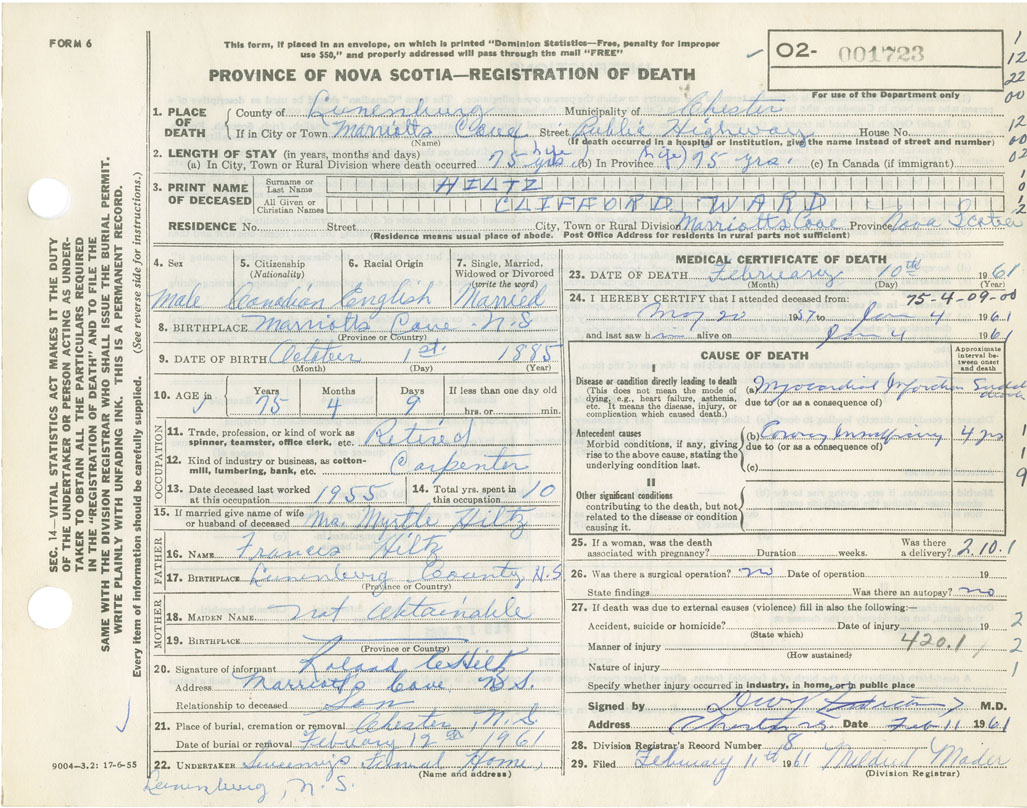 FORM 6
This form, if placed in an envelope, on which is printed "Dominion Statistics—Free, penalty for improper
use $50," and properly addressed will pass through the mail "FREE"
PROVINCE OF NOVA SCOTIA—REGISTRATION OF DEATH
02- 001723
For use of the Department only
1. PLACE OF DEATH
County of Lunenburg Municipality of Chester
If in City or Town Marriotts Cove Street Public Highway House No.
(Name) (If death occurred in a hospital or institution, give the name instead of street and number)
2. LENGTH OF STAY (in years, months and days)
(a) In City, Town or Rural Division where death occurred 75 yrs. life (b) In Province life 75 yrs. (c) In Canada (if immigrant)
3. PRINT NAME OF DECEASED
Surname or Last Name HILTZ
All Given or Christian Names CLIFFORD WARD
RESIDENCE No. Street City, Town or Rural Division Marriotts Cove Province Nova Scotia
(Residence means usual place of abode. Post Office Address for residents in rural parts not sufficient)
4. Sex
Male
5. Citizenship
(Nationality)
Canadian
6. Racial Origin
English
7. Single, Married, Widowed or Divorced
(write the word)
Married
8. BIRTHPLACE Marriotts Cove N.S
(Province or Country)
9. DATE OF BIRTH October 1st. 1885
(Month) (Day) (Year)
10. AGE in
Years Months Days If less than one day old
75 4 9 hrs. or min.
OCCUPATION
11. Trade, profession, or kind of work as
spinner, teamster, office clerk, etc. Retired
12. Kind of industry or business, as cotton-
mill, lumbering, bank, etc. Carpenter
13. Date deceased last worked
at this occupation 1955
14. Total yrs. spent in
this occupation 10
15. If married give name of wife
or husband of deceased Mrs. Myrtle Hiltz
FATHER
16. NAME Francis Hiltz
17. BIRTHPLACE Lunenburg County, N.S
(Province or Country)
MOTHER
18. MAIDEN NAME not obtainable
19. BIRTHPLACE
(Province or Country)
20. Signature of informant Roland C Hiltz
Address Marriotts Cove, N.S.
Relationship to deceased Son
21. Place of burial, cremation or removal Chester, N.S.
Date of burial or removal February 12th 1961
22. UNDERTAKER Sweeny's Funeral Home,
(Name and address)
Lunenburg, N.S.
MEDICAL CERTIFICATE OF DEATH
23. DATE OF DEATH February 10th 1961
(Month) (Day) (Year)
75-4-09-00
24. I HEREBY CERTIFY that I attended deceased from:
May 20 1957 to Jan 4 1961
and last saw him alive on Jan 4 1961
CAUSE OF DEATH
Approximate interval be-tween onset and death
I
Disease or condition directly leading to death
(This does not mean the mode of
dying, e.g., heart failure, asthenia,
etc. It means the disease, injury, or
complication which caused death.)
(a) Myocardial Infarction Sudden death
due to (or as a consequence of)
Antecedent causes
Morbid conditions, if any, giving
rise to the above cause, stating the
underlying condition last.
(b) Coronary Insufficiency 4 yrs
due to (or as a consequence of)
(c)
II
Other significant conditions
contributing to the death, but not
related to the disease or condition
causing it.
25. If a woman, was the death
associated with pregnancy? Duration weeks. Was there a delivery? 2.10.1
26. Was there a surgical operation? no Date of operation 19
State findings Was there an autopsy? no
27. If death was due to external causes (violence) fill in also the following:—
Accident, suicide or homicide? Date of injury 19
(State which)
Manner of injury 420.1
(How sustained)
Nature of injury
Specify whether injury occurred in industry, in home, or in public place
Signed by M.D.
Address Chester N.S. Date Feb 11 1961
28. Division Registrar's Record Number 8
29. Filed February 11th 1961 Mildred Mader
(Division Registrar)
SEC. 14—VITAL STATISTICS ACT MAKES IT THE DUTY
OF THE UNDERTAKER OR PERSON ACTING AS UNDER-
TAKER TO OBTAIN ALL THE PARTICULARS REQUIRED
IN THE "REGISTRATION OF DEATH" AND TO FILE THE
SAME WITH THE DIVISION REGISTRAR WHO SHALL ISSUE THE BURIAL PERMIT.
WRITE PLAINLY WITH UNFADING INK. THIS IS A PERMANENT RECORD.
Every item of information should be carefully supplied. (See reverse side for instructions.)
9004-3.2: 17-6-55
1
12
22
00
12
00
02
1
0
1
2
1
1
9
2
2
1